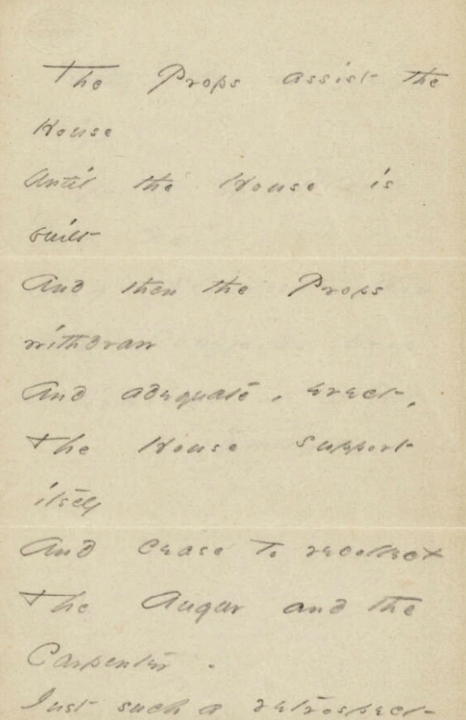 The Props assist the
House
Until the House is
built
And then the Props
withdraw
And adequate, erect,
The House support
itself
And cease to recollect
The Augur and the
Carpenter -
Just such a retrospect